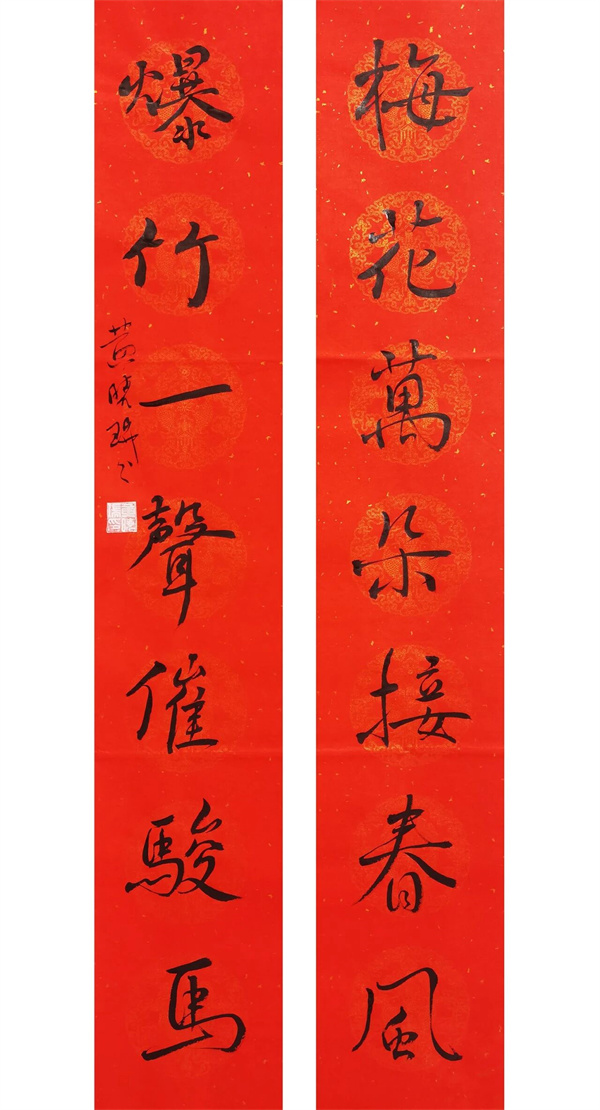 梅花萬朵接春風
爆竹一聲催駿馬
黄晓